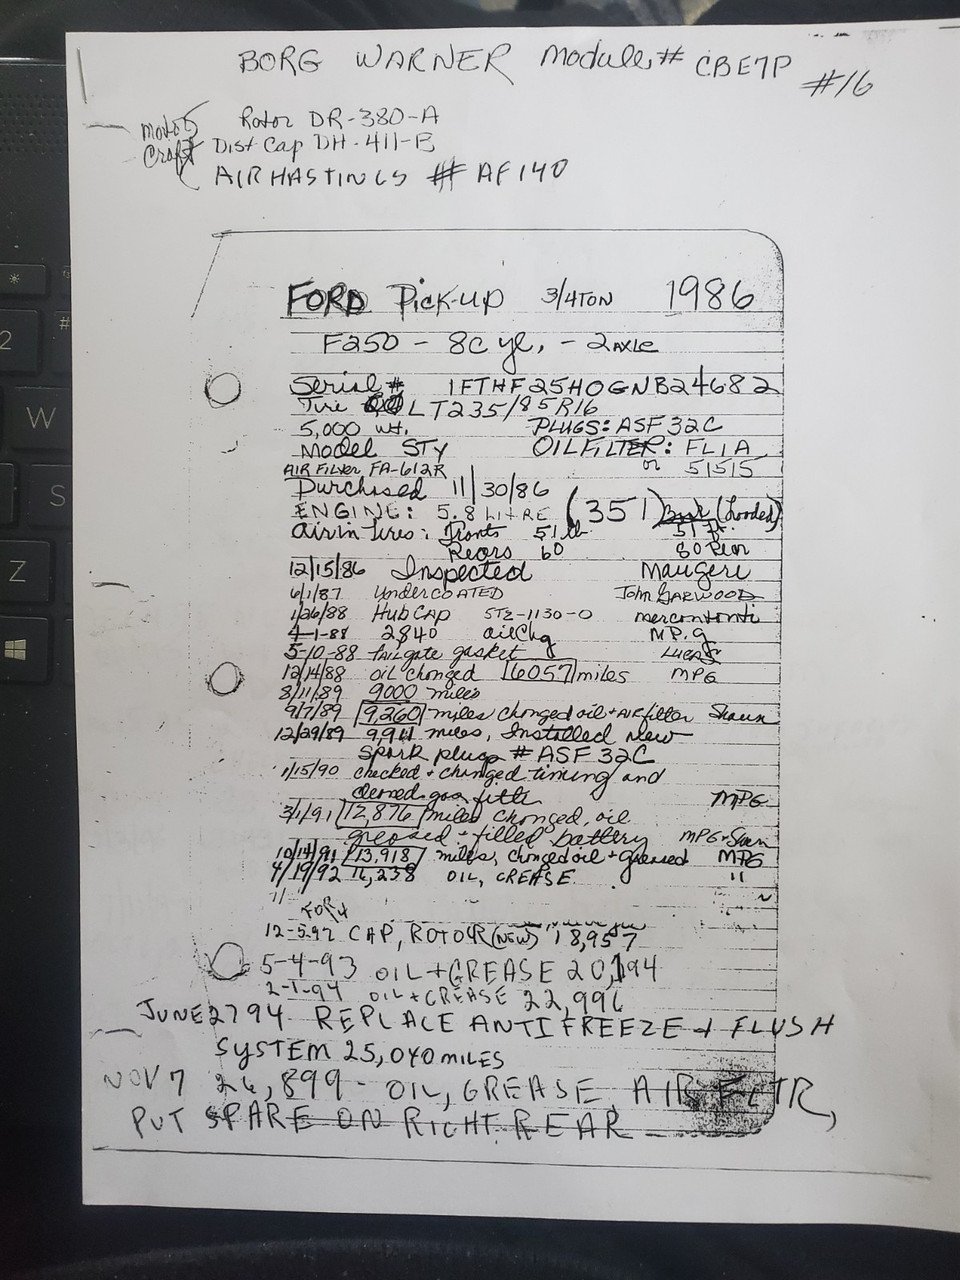 BORG WARNER Module # CBE7P
#16
Motor Craft
Rotor DR-380-A
Dist Cap DH-411-B
AIR HASTINGS # AF140
FORD Pick-up 3/4 TON 1986
F250 - 8 cyl. - 2 AXLE
Serial # 1FTHF25H0GNB24682
Tire LT235/85R16
5,000 wt. PLUGS: ASF 32C
Model STY OIL FILTER: FL1A
AIR Filter FA-612R or 51515
Purchased 11/30/86
ENGINE: 5.8 LITRE (351) (Loaded)
Air in tires: Fronts 51 lb 51 Fr.
Rears 60 80 Rear
12/15/86 Inspected Maugeri
6/1/87 UNDERCOATED John GARWOOD
1/26/88 HUB CAP STZ-1130-0
4-1-88 2840 oil Chg M.P.G
5-10-88 tailgate gasket LUCAS
12/14/88 oil changed 6057 miles MPG
3/11/89 9000 miles
9/7/89 9,260 miles changed oil + AIR filter Shaun
12/29/89 9,911 miles, Installed New
Spark plugs # ASF 32C
1/15/90 checked + changed timing and
cleaned gas filter MPG
3/1/91 12,876 miles changed, oil
greased + filled battery MPG + Shaun
10/14/91 13,918 miles, changed oil + greased MPG
4/19/92 16,238 OIL, GREASE "
12-5-92 CAP, ROTOR (NEW) 18,957
5-4-93 OIL + GREASE 20,194
2-1-94 OIL + GREASE 22,996
JUNE 27 94 REPLACE ANTIFREEZE + FLUSH
SYSTEM 25,040 MILES
NOV 7 26,899 - OIL, GREASE, AIR FLTR,
PUT SPARE ON RIGHT REAR